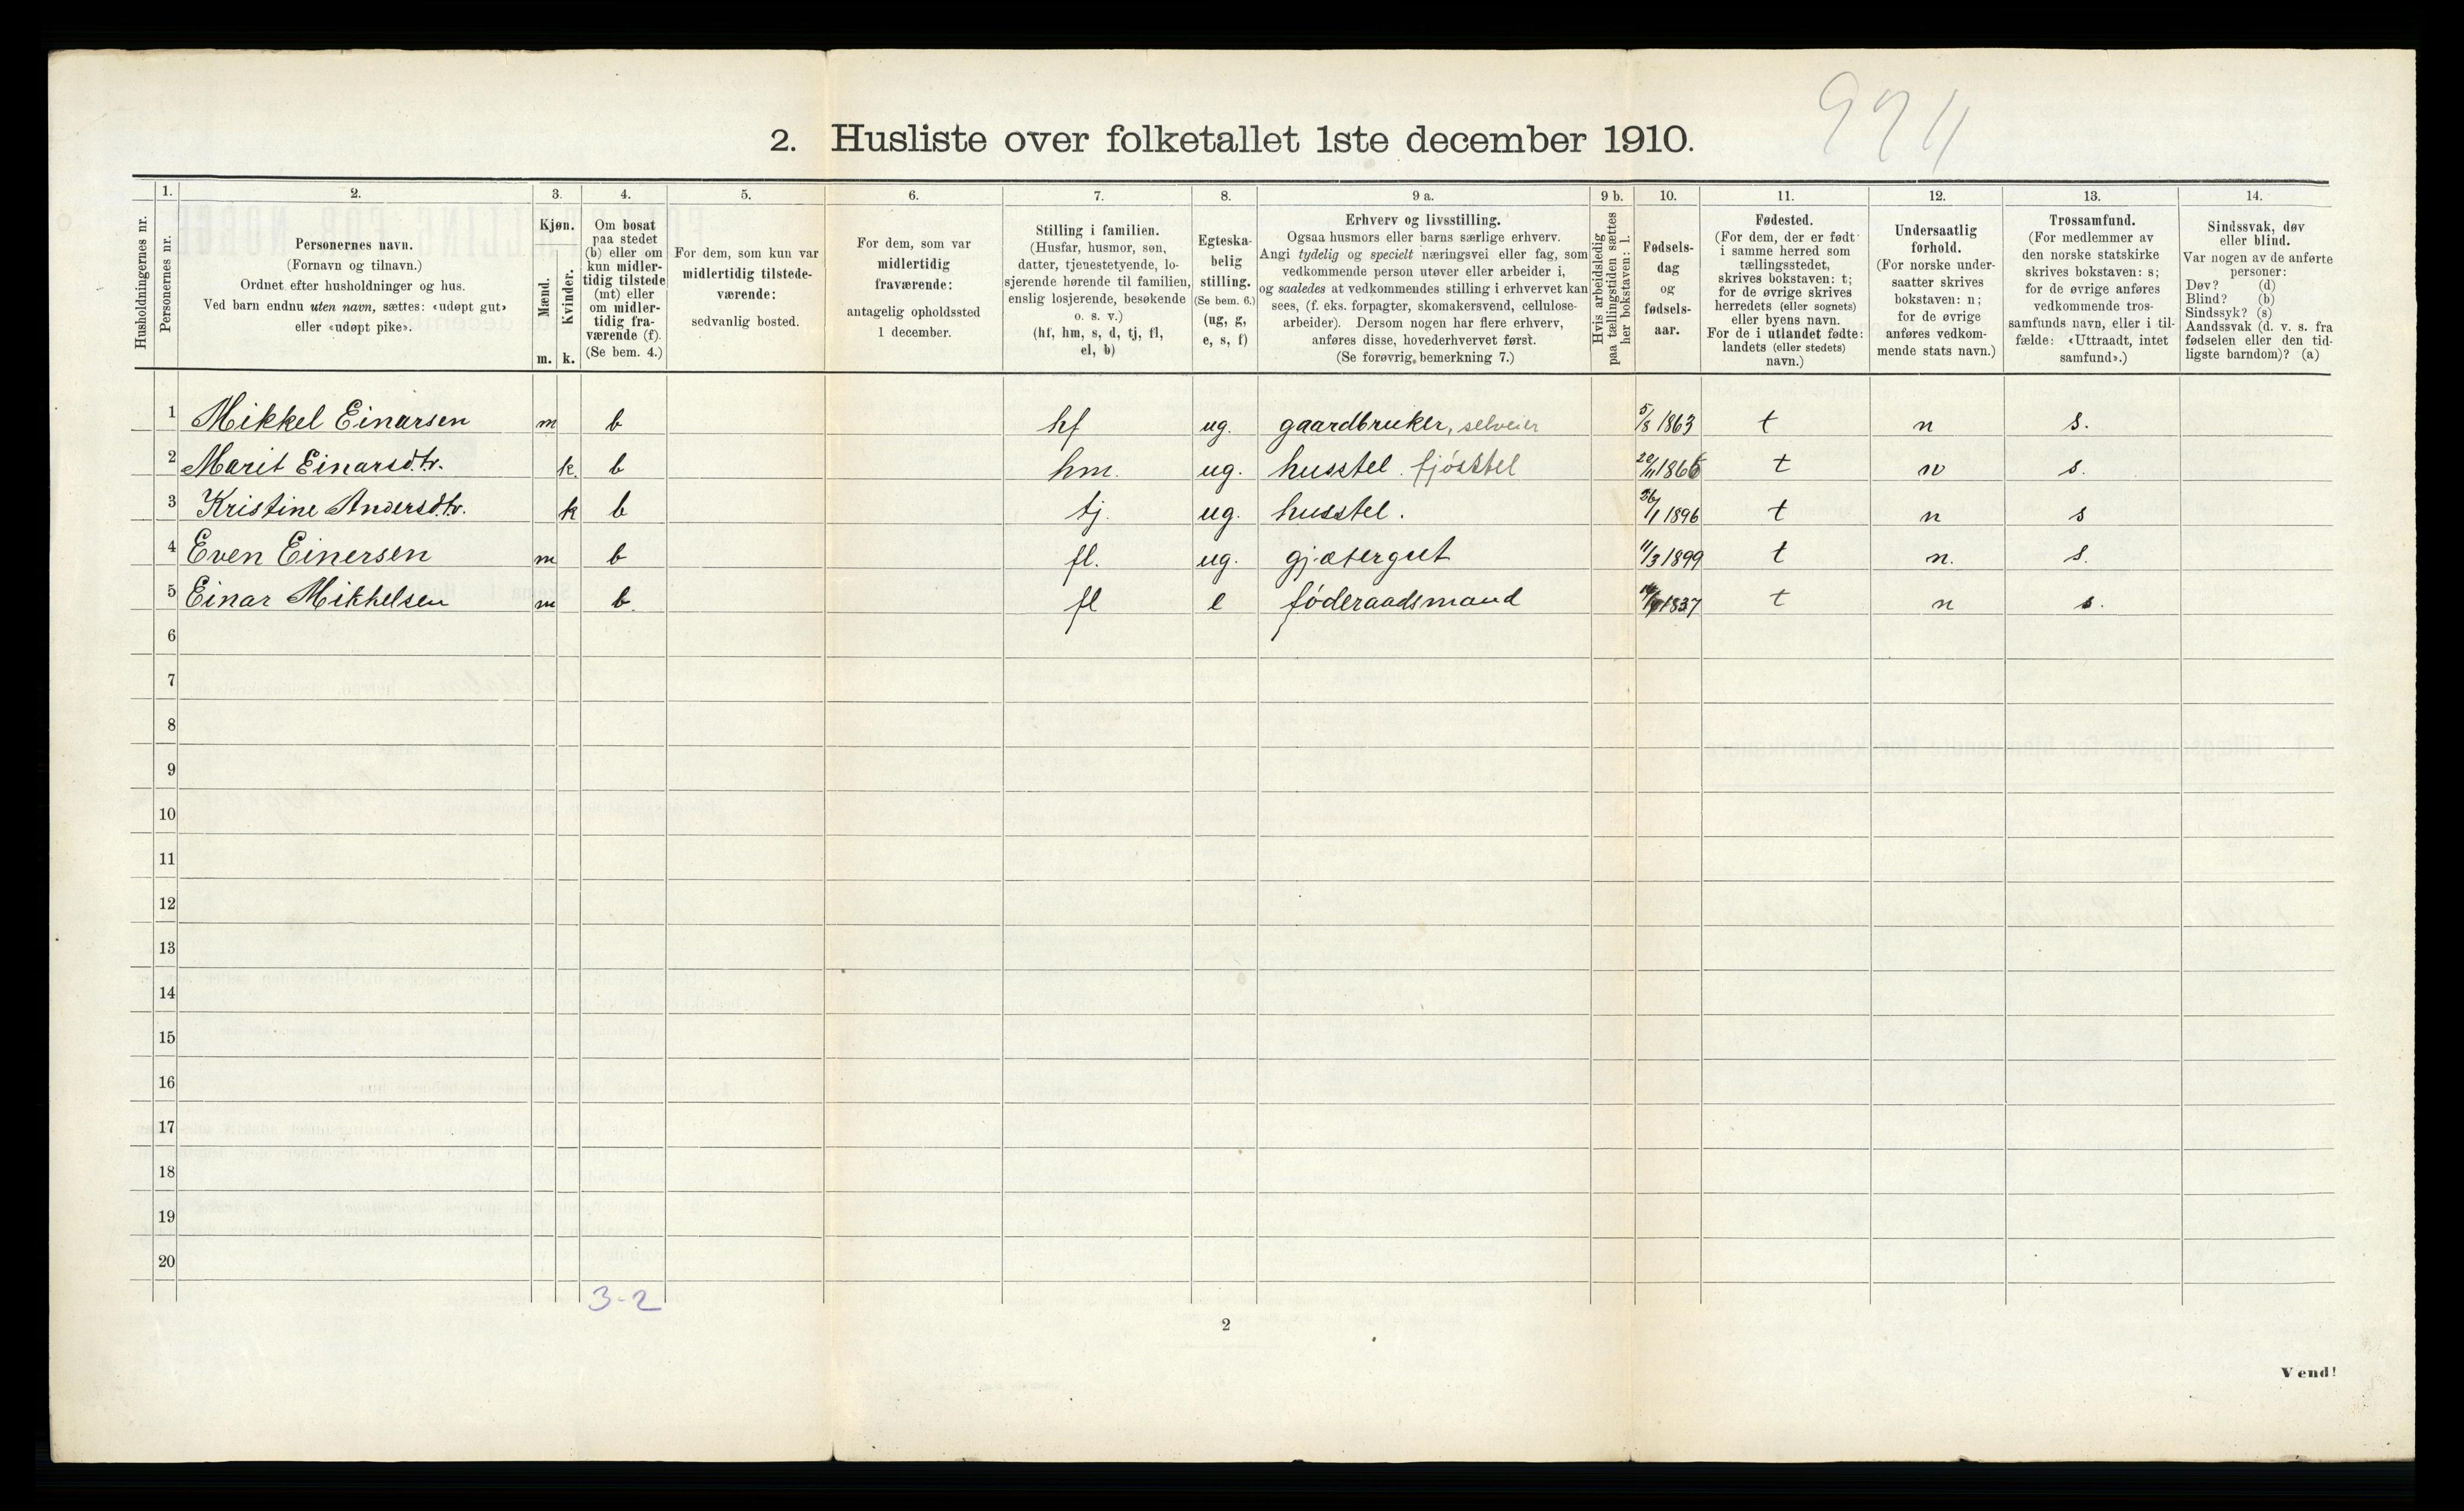 974
2. Husliste over folketallet 1ste december 1910.
Husholdningernes nr.
1.
Personernes nr.
2.
Personernes navn.
(Fornavn og tilnavn.)
Ordnet efter husholdninger og hus.
Ved barn endnu uten navn, sættes: «udøpt gut»
eller «udøpt pike».
3.
Kjøn.
Mænd.
Kvinder.
m. k.
4.
Om bosat
paa stedet
(b) eller om
kun midler-
tidig tilstede
(mt) eller
om midler-
tidig fra-
værende (f).
(Se bem. 4.)
5.
For dem, som kun var
midlertidig tilstede-
værende:
sedvanlig bosted.
6.
For dem, som var
midlertidig
fraværende:
antagelig opholdssted
1 december.
7.
Stilling i familien.
(Husfar, husmor, søn,
datter, tjenestetyende, lo-
sjerende hørende til familien,
enslig losjerende, besøkende
o. s. v.)
(hf, hm, s, d, tj, fl,
el, b)
8.
Egteska-
belig
stilling.
(Se bem. 6.)
(ug, g,
e, s, f)
9 a.
Erhverv og livsstilling.
Ogsaa husmors eller barns særlige erhverv.
Angi tydelig og specielt næringsvei eller fag, som
vedkommende person utøver eller arbeider i,
og saaledes at vedkommendes stilling i erhvervet kan
sees, (f. eks. forpagter, skomakersvend, cellulose-
arbeider). Dersom nogen har flere erhverv,
anføres disse, hovederhvervet først.
(Se forøvrig bemerkning 7.)
9 b.
Hvis arbeidsledig
paa tællingstiden sættes
her bokstaven: l.
10.
Fødsels-
dag
og
fødsels-
aar.
11.
Fødested.
(For dem, der er født
i samme herred som
tællingsstedet,
skrives bokstaven: t;
for de øvrige skrives
herredets (eller sognets)
eller byens navn.
For de i utlandet fødte:
landets (eller stedets)
navn.)
12.
Undersaatlig
forhold.
(For norske under-
saatter skrives
bokstaven: n;
for de øvrige
anføres vedkom-
mende stats navn.)
13.
Trossamfund.
(For medlemmer av
den norske statskirke
skrives bokstaven: s;
for de øvrige anføres
vedkommende tros-
samfunds navn, eller i til-
fælde: «Uttraadt, intet
samfund».)
14.
Sindssvak, døv
eller blind.
Var nogen av de anførte
personer:
Døv? (d)
Blind? (b)
Sindssyk? (s)
Aandssvak (d. v. s. fra
fødselen eller den tid-
ligste barndom)? (a)
1 Mikkel Einarsen m b hf ug. gaardbruker, selveier 5/8 1863 t n s.
2 Marit Einarsd.tr. k. b hm. ug. husstel. fjósstel t n s.
3 Kristine Andersd.tr. k b tj. ug. husstel. 26/1 1896 t n s
4 Even Einersen m b fl. ug. gjætergut 11/3 1899 t n. s.
5 Einar Mikkelsen m b. fl e føderaadsmand 1837 t n s.
6
7
8
9
10
11
12
13
14
15
16
17
18
19
20
3-2
2
Vend!